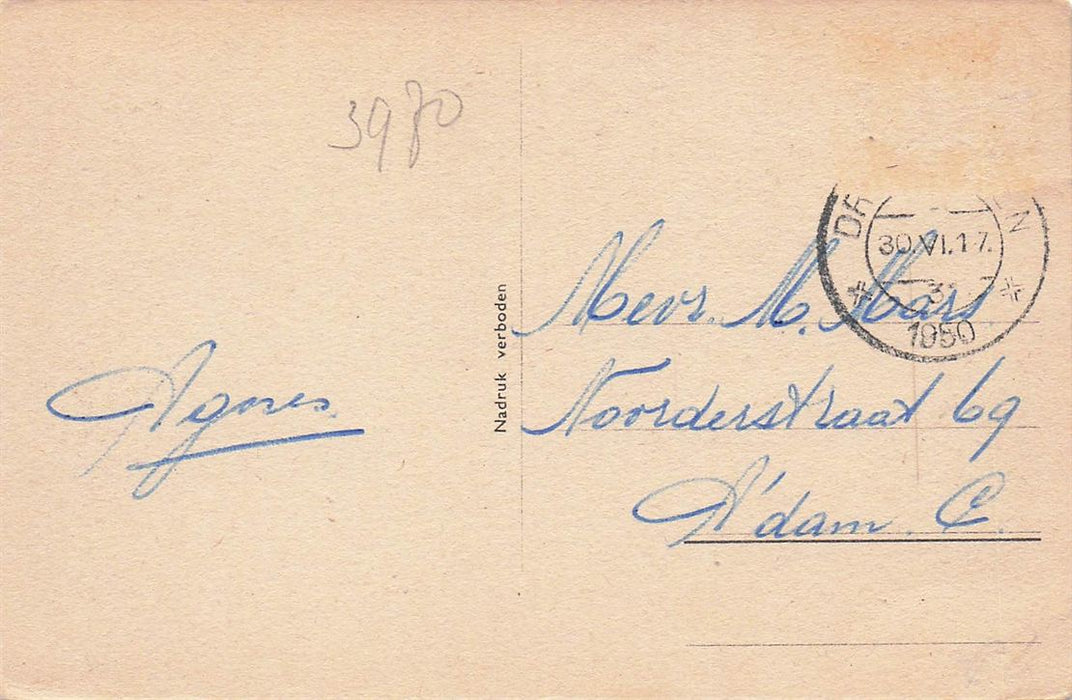 3970
30.VI.17.
3
1950
Nadruk verboden
Mevr. M. Mars
Noorderstraat 69
A'dam. C.
Agnes